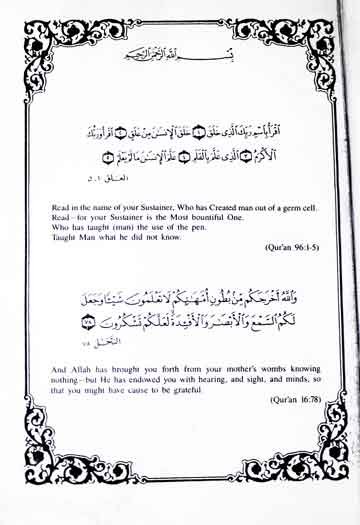 بِسْمِ اللَّهِ الرَّحْمَٰنِ الرَّحِيمِ
اقْرَأْ بِاسْمِ رَبِّكَ الَّذِي خَلَقَ ﴿١﴾ خَلَقَ الْإِنسَانَ مِنْ عَلَقٍ ﴿٢﴾ اقْرَأْ وَرَبُّكَ
الْأَكْرَمُ ﴿٣﴾ الَّذِي عَلَّمَ بِالْقَلَمِ ﴿٤﴾ عَلَّمَ الْإِنسَانَ مَا لَمْ يَعْلَمْ ﴿٥﴾
العلق ١ ـ ٥
Read in the name of your Sustainer, Who has Created man out of a germ cell.
Read—for your Sustainer is the Most bountiful One.
Who has taught (man) the use of the pen.
Taught Man what he did not know.
(Qur'an 96:1-5)
وَاللَّهُ أَخْرَجَكُم مِّنْ بُطُونِ أُمَّهَاتِكُمْ لَا تَعْلَمُونَ شَيْئًا وَجَعَلَ
لَكُمُ السَّمْعَ وَالْأَبْصَارَ وَالْأَفْئِدَةَ لَعَلَّكُمْ تَشْكُرُونَ ﴿٧٨﴾
النحل ٧٨
And Allah has brought you forth from your mother's wombs knowing
nothing—but He has endowed you with hearing, and sight, and minds, so
that you might have cause to be grateful.
(Qur'an 16:78)